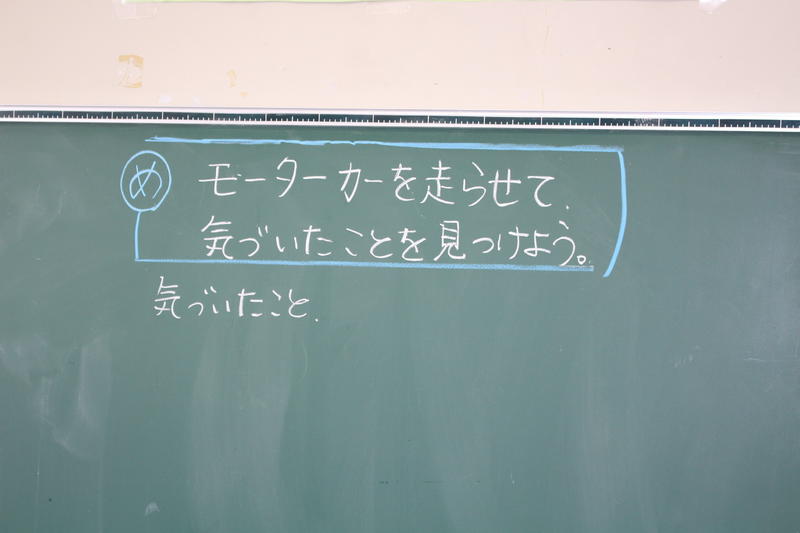 め モーターカーを走らせて、
気づいたことを見つけよう。
気づいたこと、